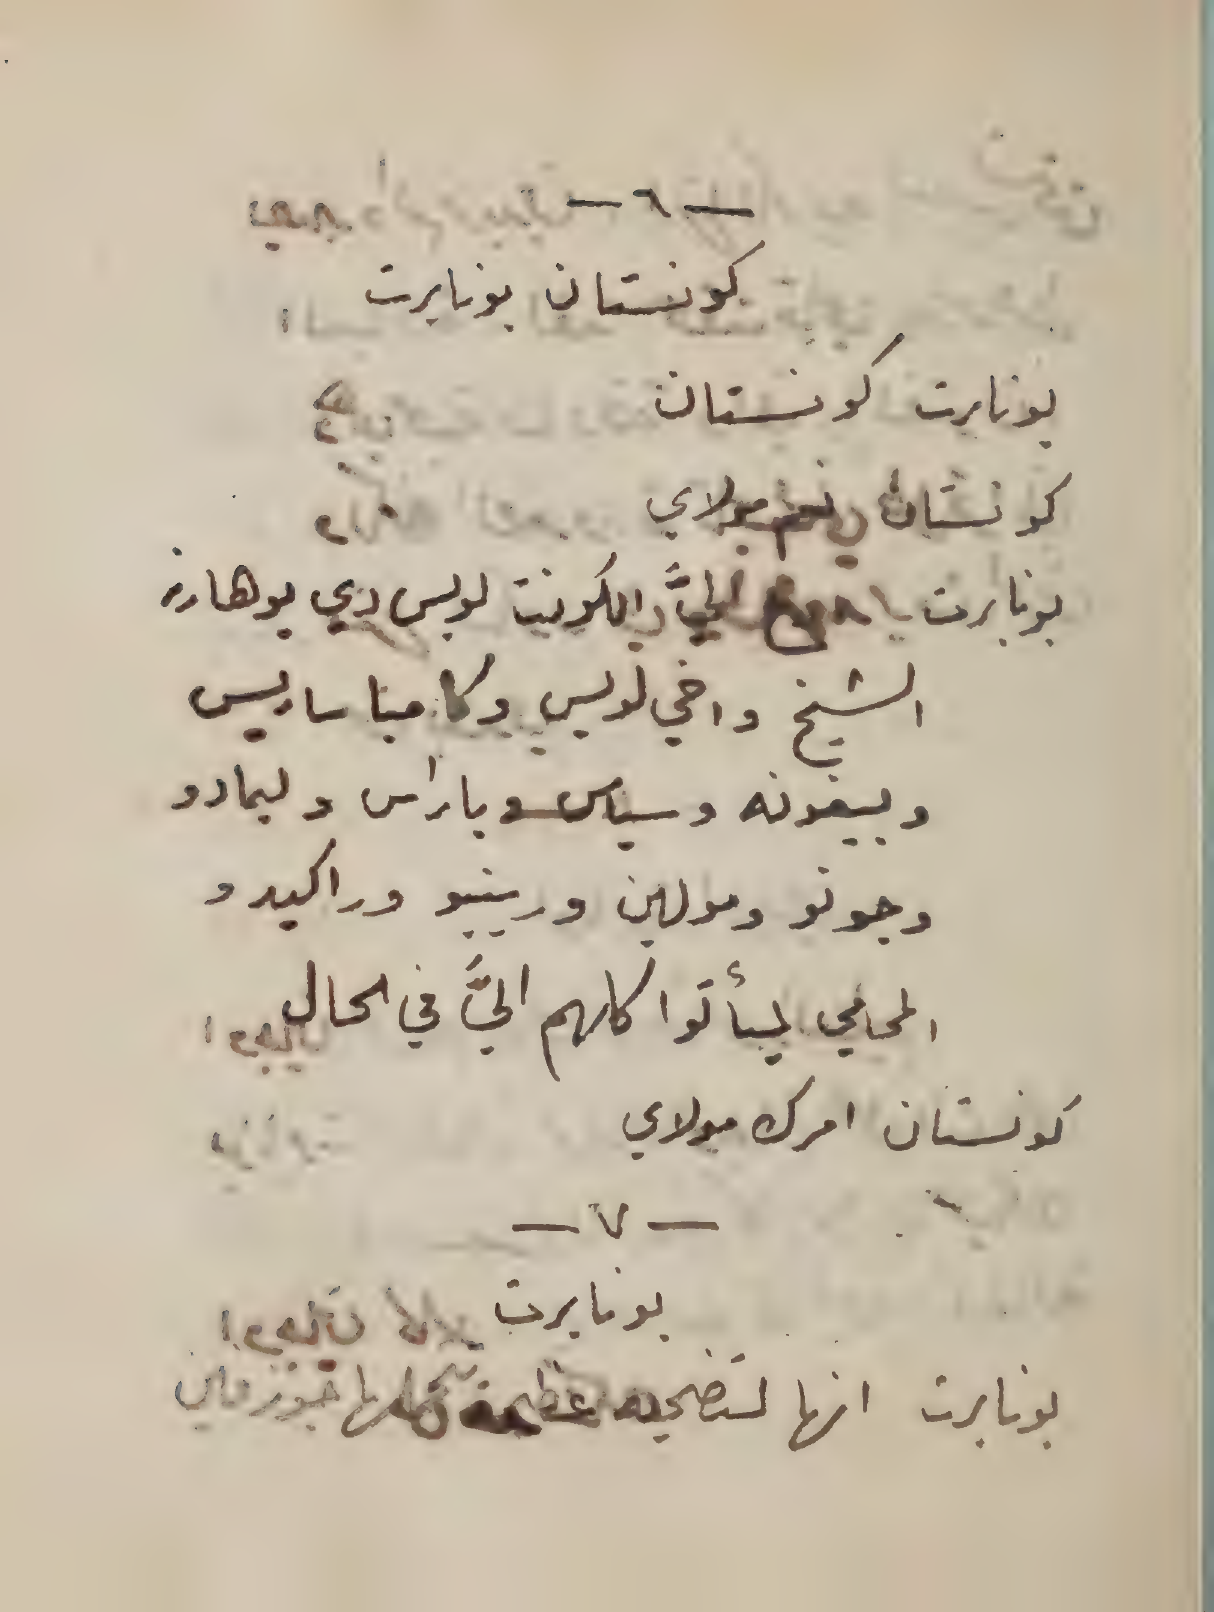 — ٦ —
كونستان بونابرت
بونابرت كونستان
كونستان نعم مولاي
بونابرت اليَّ الكونت لويس دي بوهارنه
الشيخ واخي لويس وكامباساريس
وبيغونه وسياس وباراس وليمادو
وجونو ومولين وريبو وراكيد و
المحامي ليأتوا كلهم اليَّ في الحال
كونستان امرك مولاي
— ٧ —
بونابرت
بونابرت انها لتضحيه عظيمة جوزفين